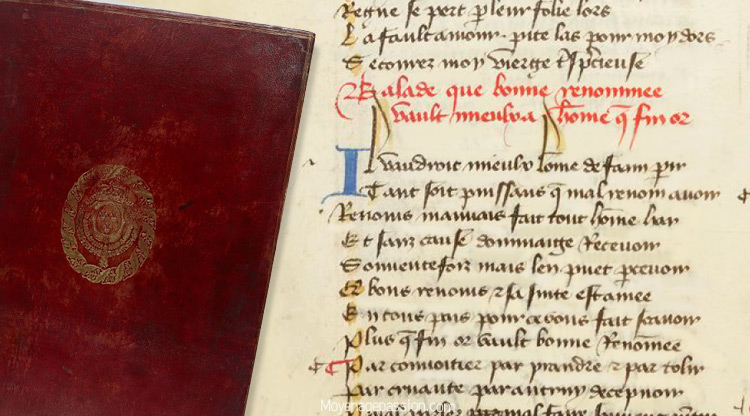 Regne se pert p leur folie lors
La fault amour pite las pour moy dors
Secourez moy vierge tspcieuse
Balade que bonne renommee
vault mieulx a home q fin or
Il vauldroit mieulx home de faim perir
Tant soit puissans q mal renom avoir
Renoms mauvais fait tout home hair
Et sanz cause dommaige Recevoir
Souventefoiz mais len puet pcevoir
Bons renoms et sa suite est amee
En tous pais pour ce vous fait scavoir
Plus q fin or vault bonne Renomee
Par convoitier par prandre et par tolir
Par cruaute par autruy decepvoir
Moyenagepassion.com